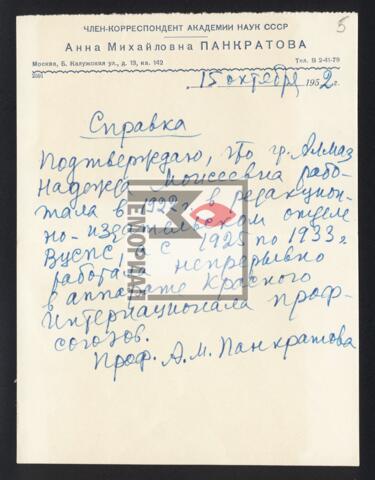 5
ЧЛЕН-КОРРЕСПОНДЕНТ АКАДЕМИИ НАУК СССР
Анна Михайловна ПАНКРАТОВА
Москва, Б. Калужская ул., д. 13, кв. 142 Тел. В 2-41-79
15 октября 1952 г.
Справка
Подтверждаю, что гр. Алмаз
Надежда Моисеевна рабо-
тала в 1922 г. в редакцион-
но-издательском отделе
ВЦСПС, а с 1925 по 1933 г.
работала непрерывно
в аппарате Красного
Интернационала проф-
союзов.
Проф. А. М. Панкратова
МЕМОРИАЛ